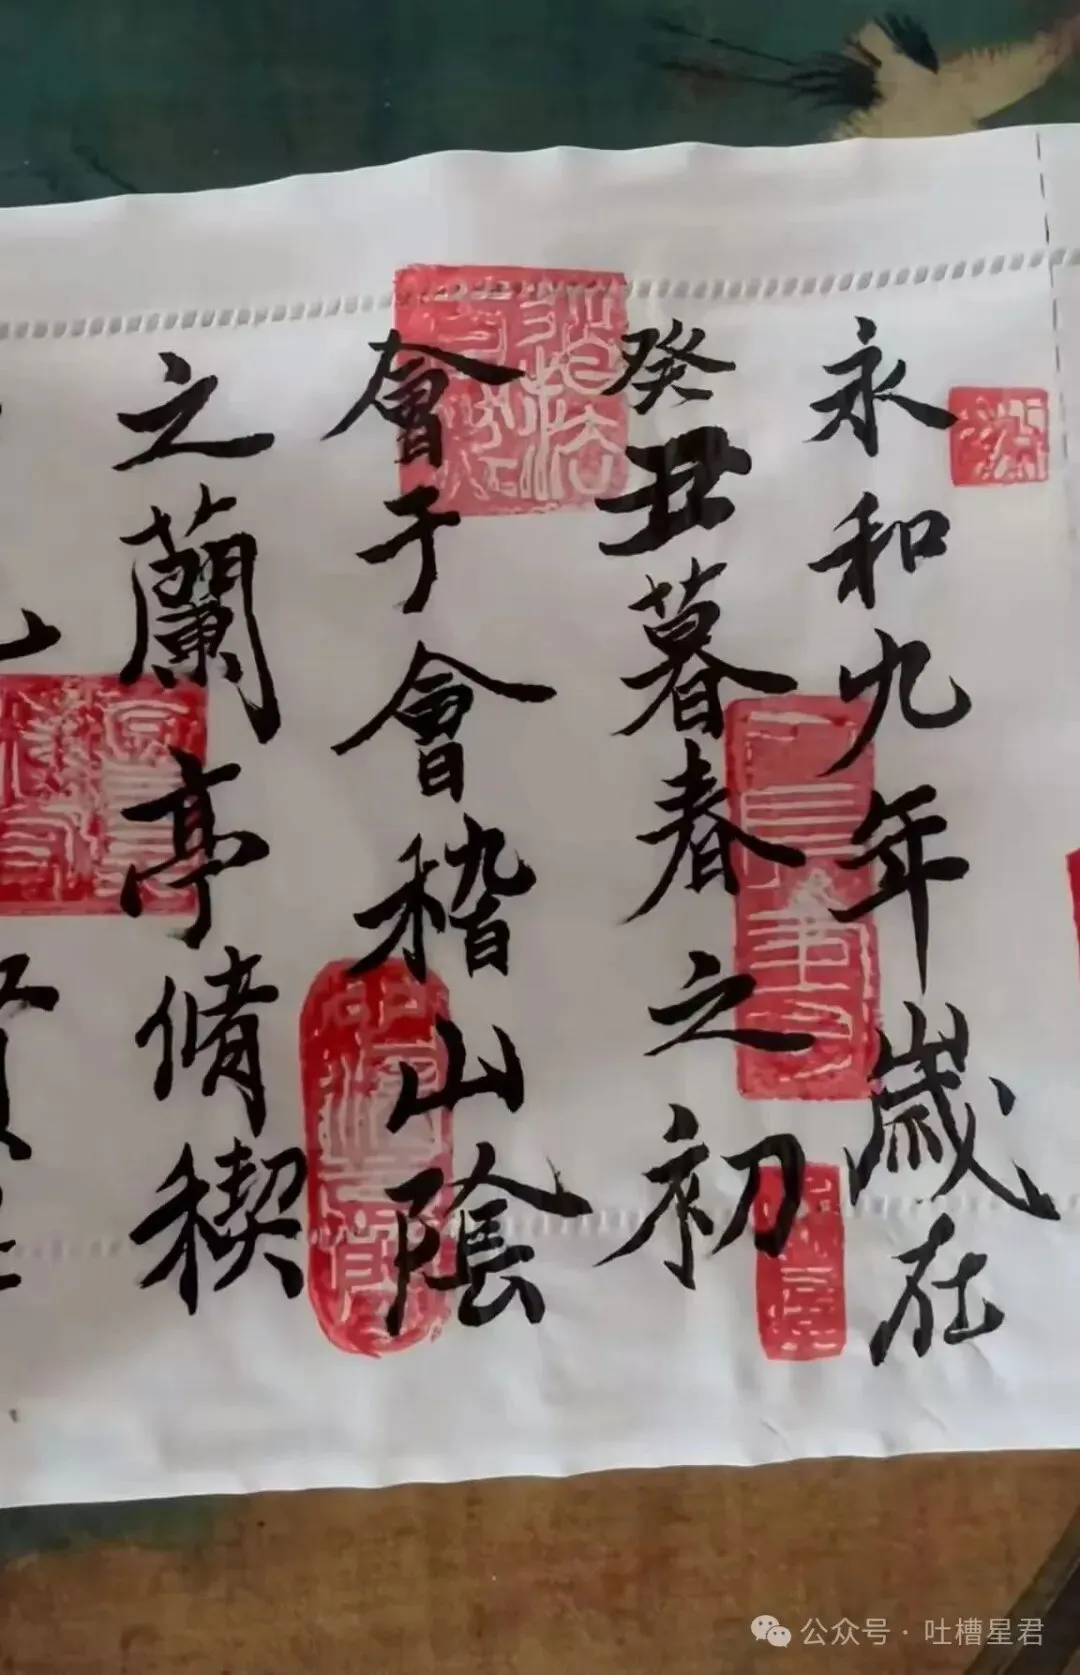 永和九年歲在
癸丑暮春之初
會于會稽山陰
之蘭亭脩稧
公众号·吐槽星君